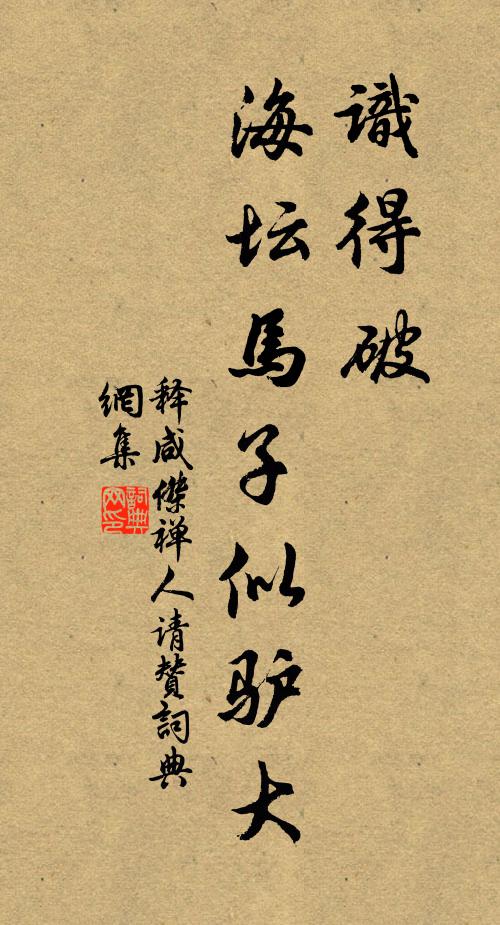 識得破
海坛馬子似驴大
释咸傑禅人请贊詞典
網集
詞典
网印